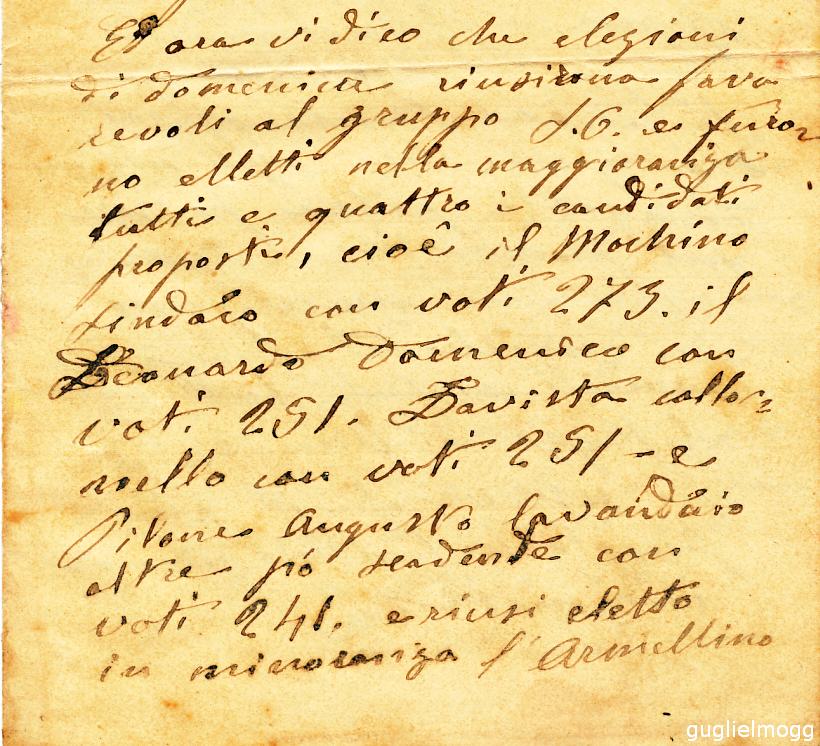 Ed ora vi dico che elezioni
di domenica riusirono favo
revoli al gruppo S.G. e furo-
no elletti nella maggioranza
tutti e quattro i candidati
proposti, cioè il Mochino
sindaco con voti 273. il
Leonardo Domenico con
voti 251. Davista collo-
nello con voti 251 - e
Pilone Augusto lavandaio
oltre pò scadente con
voti 241. e riusi eletto
in minoranza l'Armellino
guglielmogg